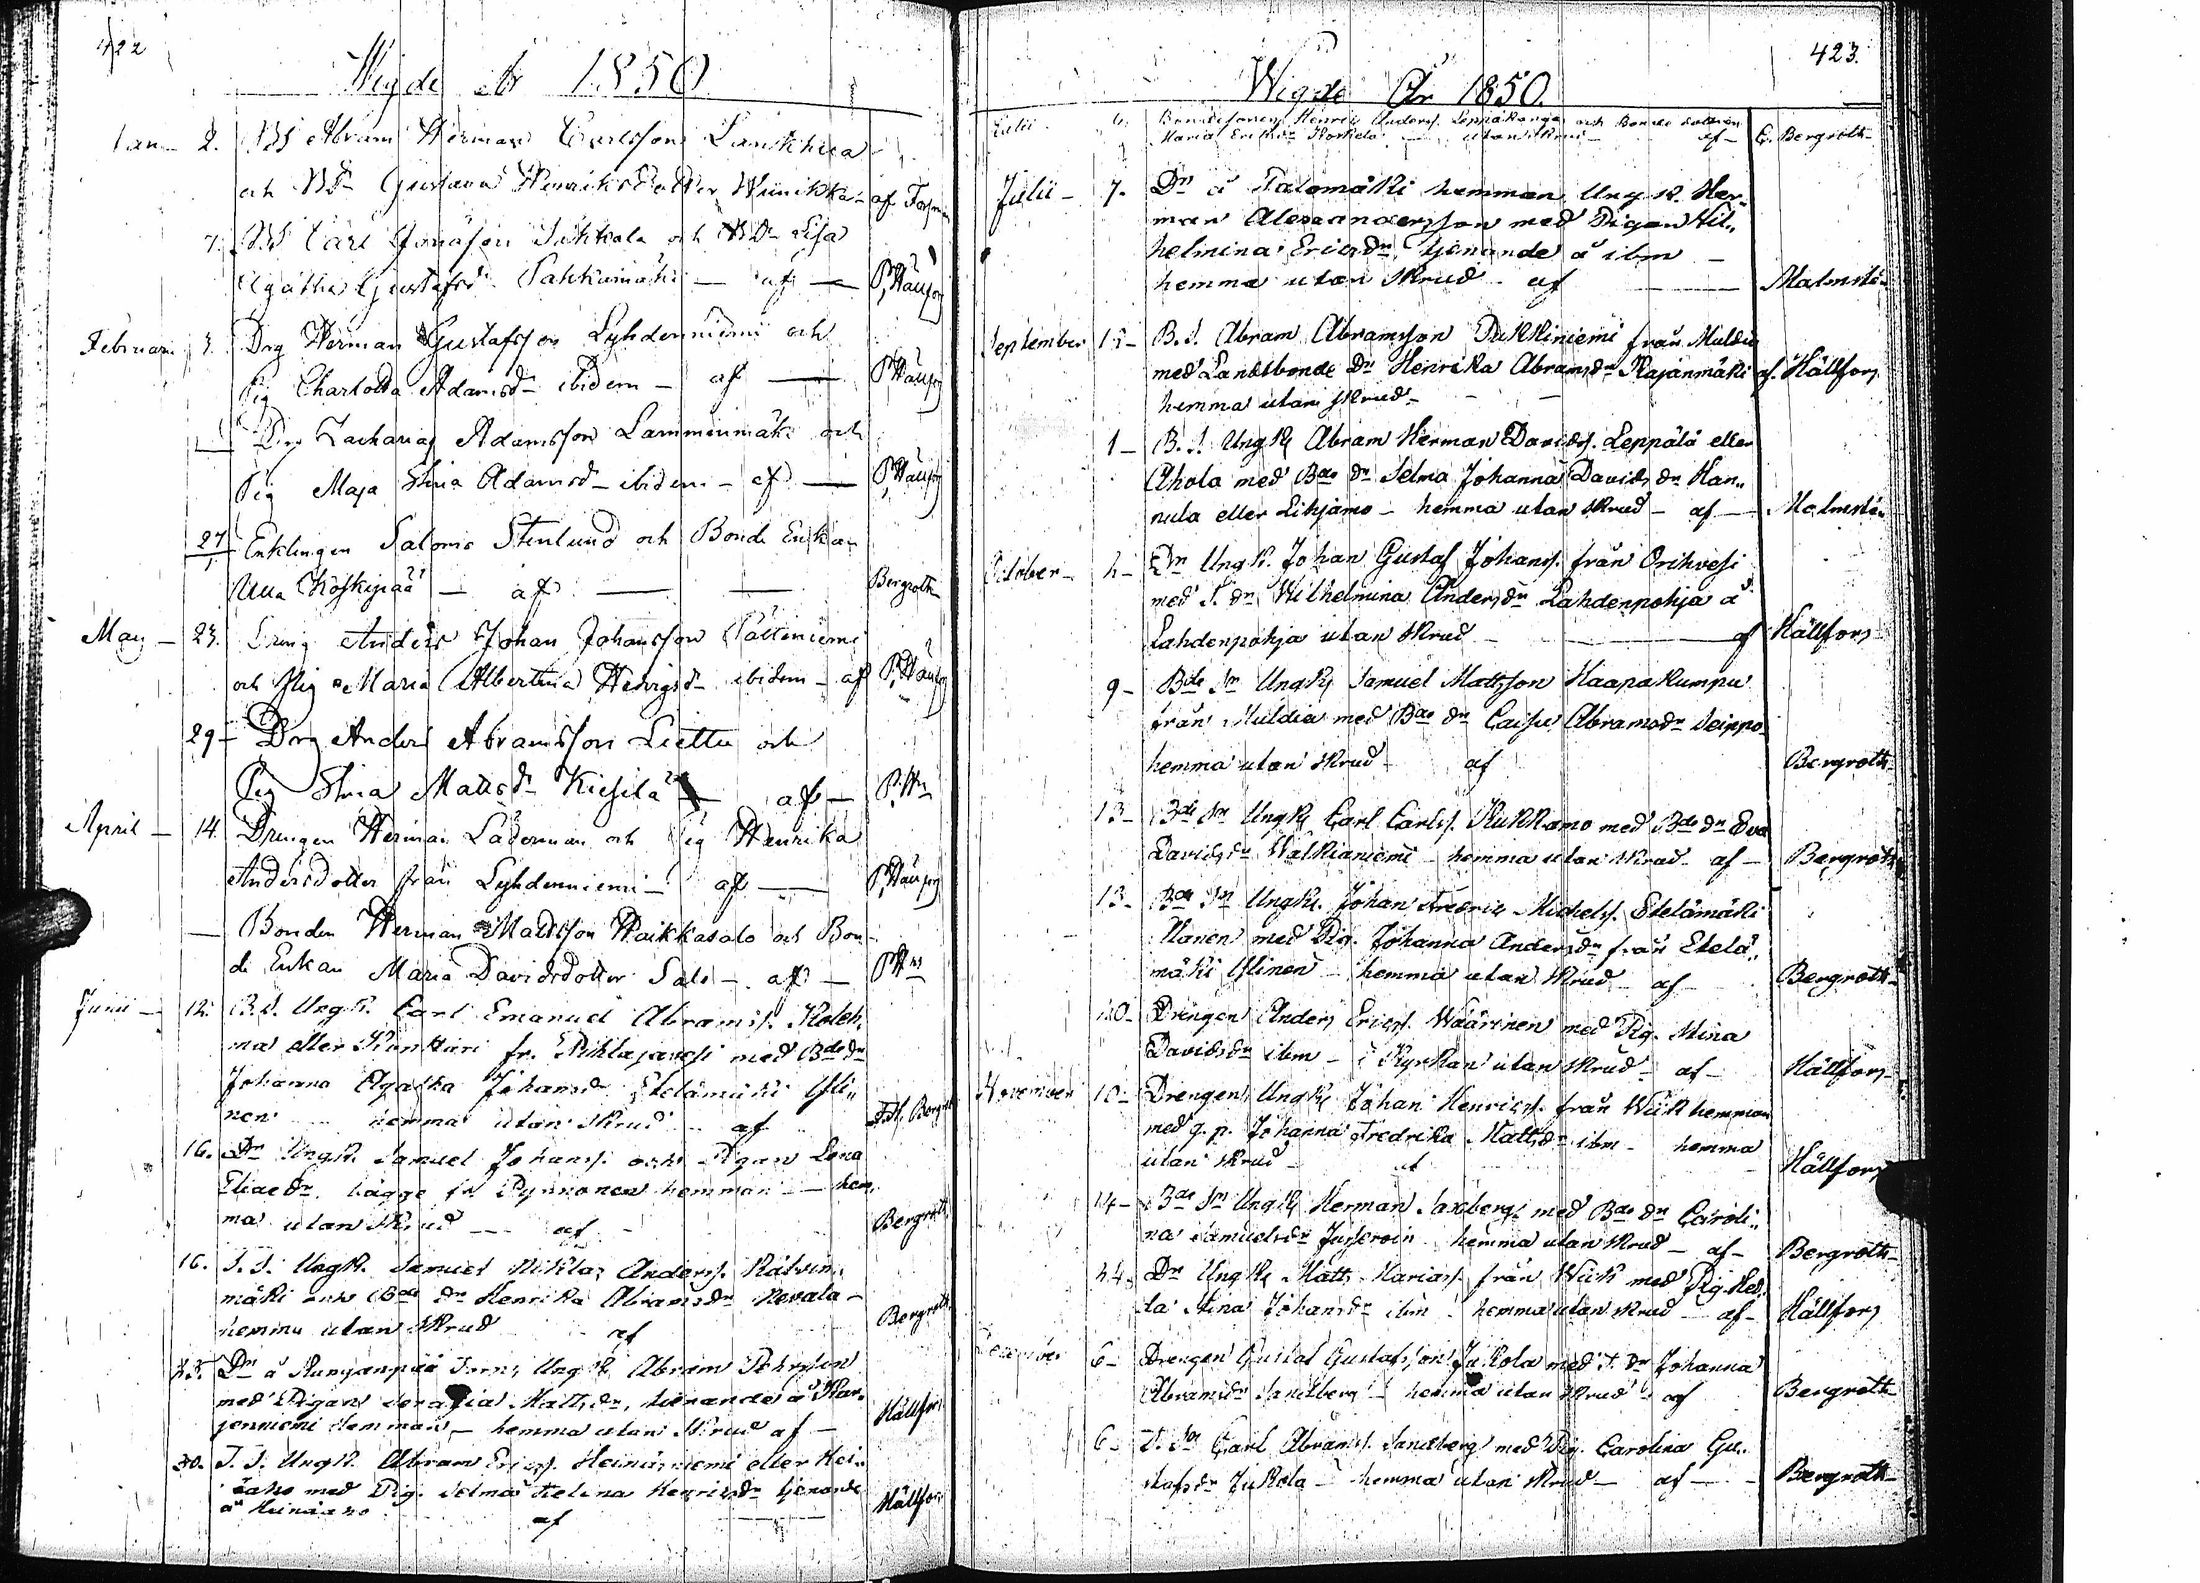 422
Wigde År 1850
Jan 2. BS Abram Herman Carlsson
och BDr Gustava Henriksdotter Winikka - af
7. BS Carl Jonasson och BDr Lisa
Agatha Gustafsd - af - P, Haujoy
Februari 3. Drg Herman Gustafsson Lyhdenniemi och
Pig Charlotta Adamsd - ibidem - af - P Haujoy
Drg Zacharias Adamsson Lamminmäki och
Pig Maja Stina Adamsd - ibidem - af - P, Haujoy
27 Enklingen Salomo Stenlund och Bonde Enkan
Ulla Koskipää - af - Bergroth
May - 23. Dräng Anders Johan Johansson
och Pig Maria Albertina Henrigsd - ibidem - af P, Haujoy
29 - Drg Anders Abramsson Liettu och
Pig Stina Mattsdr Kiesilä - af - P. Hn
April - 14. Drengen Herman Läderman och Pig Henrika
Andersdotter från Lyhdenniemi - af - P, Haujoy
- Bonden Herman Mattsson Haikkasalo och Bon-
de Enkan Maria Davidsdotter Salo - af - P Hn
Junii - 12. B.S. Ungk. Carl Emanuel Abramss. Koleh,
ma eller fr. Pihlajavesi med Bde Dr
Johanna Agatha Johansdr Etelämäki Yli,,
nen hemma utan skrud af Bergroth
16. Dr Ungk. Samuel Johanss. och Pigan Lena
Eliaedr. bägge fr Pynnönen hemman - hem,
ma utan skrud - af - Bergroth
16. T.S. Ungk. Samuel Niklas Anderss.
mäki och Bde dr Henrika Abramsdr Kevala -
hemma utan skrud af Bergroth
23. Dr å Ungk Abram
med Pigan Serafia Mattsdr, tienande å Kar,
jenniemi hemman - hemma utan skrud af - Hällfors
30. T.S. Ungk. Abram Ericss. Heinäniemi eller Hei,,
naho med Pig. Selma Helena Henricsdr tjenande
å Heinäaho af Hällfors
423.
Wigde År 1850.
Julii 6. Bondesonen Henric Anderss. Leppäkangas och Bonde dottren
Maria Ericsdr Korkela - utan skrud - af - E. Bergroth
Julii - 7. Dr å Talomäki hemman Ungk. Her-
man Alexandersson med Pigan Wil,,
helmina Ericsdr, tjenande å ibm -
hemma utan skrud - af - Malmstén
September 1 - B.S. Abram Abramsson Pukkiniemi från Muldia
med Landbonde Dr Henrika Abramsdr Rajanmäki af. Hällfors
hemma utan skrud -
1 - B.S. Ungk Abram Herman Davids. Leppälä eller
Ahola med Bde dr Selma Johanna Davidsdr Han,,
nula eller Lihjamo - hemma utan skrud - af - Malmstén
October - Dr Ungk. Johan Gustaf Johanss. från Orihvesi
med T. dr Wilhelmina Andersdr Lahdenpohja å
Lahdenpohja utan skrud - af Hällfors
9 - Bde Sn Ungk Samuel Mattsson Haapakumpu
från Muldia med Bde dr Caisa Abramsdr Seippo
hemma utan skrud - af Bergroth
13 - Bde Sn Ungk Carl Carlss. Kukkamo med Bde dr Eva
Davidsdr Walkianiemi - hemma utan skrud - af - Bergroth
13 - Bde Sn Ungk. Johan Fredric Michelss. Etelämäki
Ylönen med Pig. Johanna Andersdr från Etelä,,
mäki Ylinen - hemma utan skrud - af - Bergroth
20 - Drengen Anders Ericss. Wäärinen med Pig. Stina
Davidsdr ibm - i Kyrkan utan skrud - af - Hällfors
November 10 - Drengen Ungk Johan Henricss. från Wiik hemman
med q.p. Johanna Fredrika Mattsdr ibm - hemma
utan skrud - af Hällfors
14 - Bde Sn Ungk Herman Saxberg med Bde dr Caroli,,
na Samuelsdr - hemma utan skrud - af - Bergroth
24. Dr Ungk Matts Mariass. från Wiik med Pig. Hed,
da Stina Johansdr ibm - hemma utan skrud - af - Hällfors
December 6 - Drengen Gustaf Gustafsson Jukola med T. dr Johanna
Abramsdr Sandberg - hemma utan skrud - af Bergroth
6 - T. Sn Carl Abramss. Sandberg med Pig. Carolina Gu,,
stafsdr Jukola - hemma utan skrud - af - Bergroth